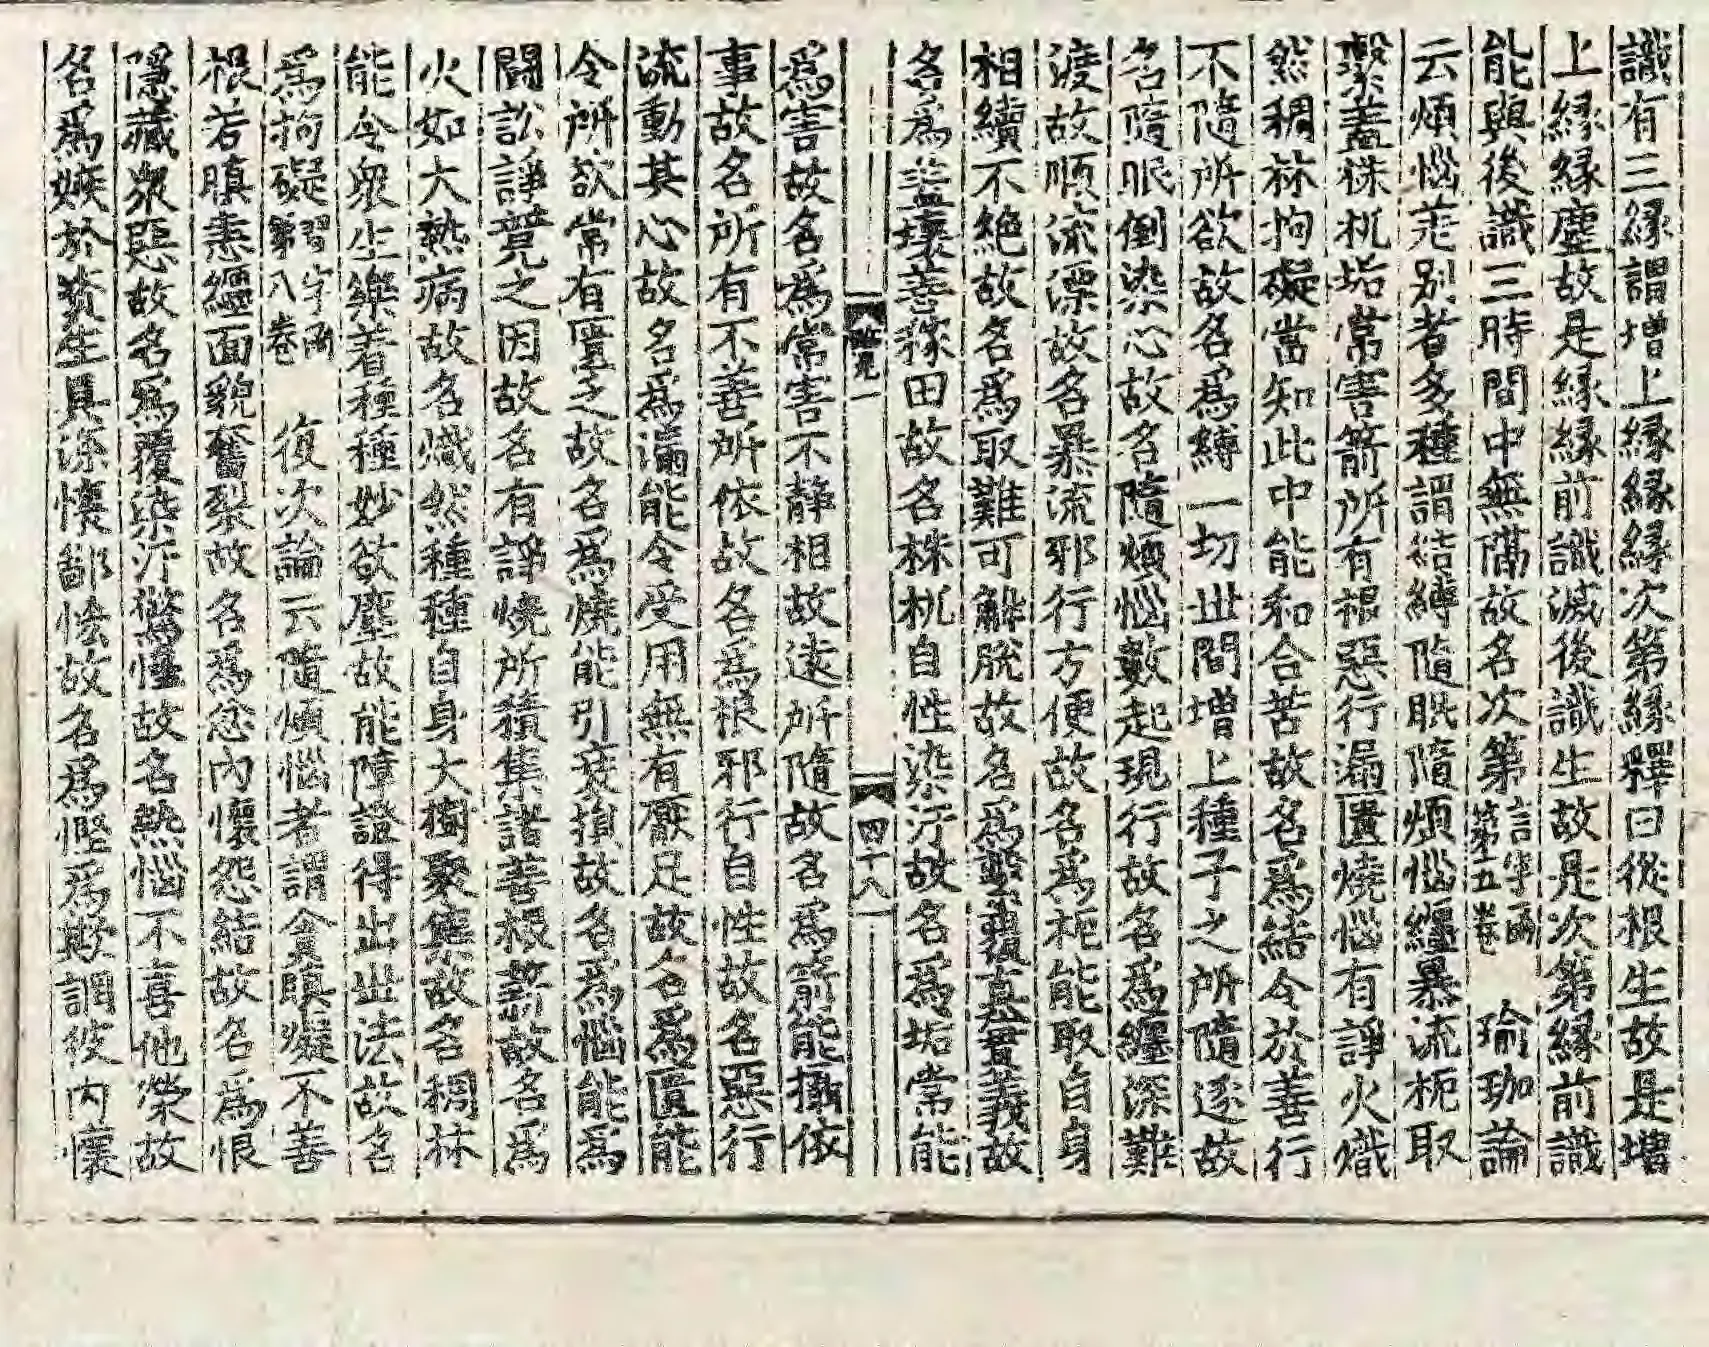 識有三縁謂增上縁縁縁次第縁釋曰從根生故是增
上縁縁塵故是縁縁前識滅後識生故是次第縁前識
能與後識三時間中無隔故名次第 言字函第五卷 瑜珈論
云煩惱差別者多種謂結縛隨眠隨煩惱纏暴流枙取
繫蓋株杌垢常害箭所有根惡行漏匱燒惱有諍火熾
然稠林拘礙當知此中能和合苦故名爲結令於善行
不隨所欲故名爲縛一切世間增上種子之所隨逐故
名隨眠倒染心故名隨煩惱數起現行故名爲纏深難
渡故順流漂故名暴流邪行方便故名爲枙能取自身
相續不絶故名爲取難可解脫故名爲繫覆真實義故
名爲蓋壞善稼田故名株杌自性染汙故名爲垢常能
四十八
爲害故名爲常害不靜相故遠所隨故名爲箭能攝依
事故名所有不善所依故名爲根邪行自性故名惡行
流動其心故名爲漏能令受用無有厭足故名爲匱能
令所欲常有匱乏故名爲燒能引衰損故名爲惱能爲
鬪訟諍競之因故名有諍燒所積集諸善根薪故名爲
火如大熱病故名熾然種種自身大樹聚集故名稠林
能令衆生樂着種種妙欲塵故能障證得出世法故名
爲拘礙 習字函第八卷 復次論云隨煩惱者謂貪瞋癡不善
根若瞋恚纏面貌奮裂故名爲忿內懷怨結故名爲恨
隱藏衆惡故名爲覆染汙驚惶故名熱惱不喜他榮故
名爲嫉於資生具深懷鄙悋故名爲慳爲欺調彼內懷